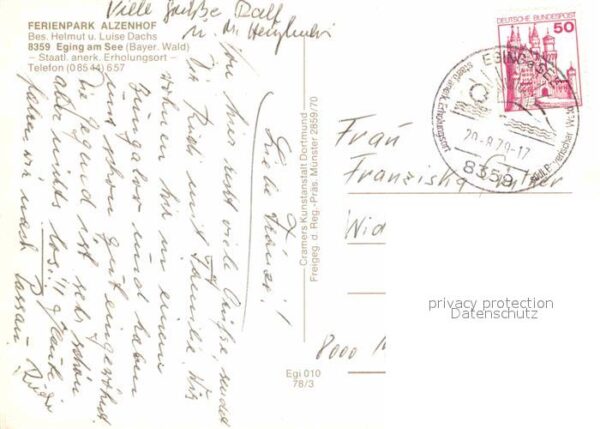 FERIENPARK ALZENHOF
Bes. Helmut u. Luise Dachs
8359 Eging am See (Bayer. Wald)
– Staatl. anerk. Erholungsort –
Telefon (0 85 44) 6 57
Viele Grüße Ralf
u. M.
Liebe Franzi!
Von hier viele Grüße, sendet
Dir Rudi mit Familie. Wir
wohnen hier in einem
Bungalow und haben
uns schon gut eingewöhnt.
Die Gegend ist sehr schön
aber nichts los!!!
fahren wir nach Passau.
Cramers Kunstanstalt Dortmund
Freigeg. d. Reg.-Präs. Münster 2859/70
Egi 010
78/3
DEUTSCHE BUNDESPOST
50
EGING a. SEE
staatl. anerk. Erholungsort
20.-8.79.-17
8359
Frau
Franziska
Wid
8000 M
privacy protection
Datenschutz